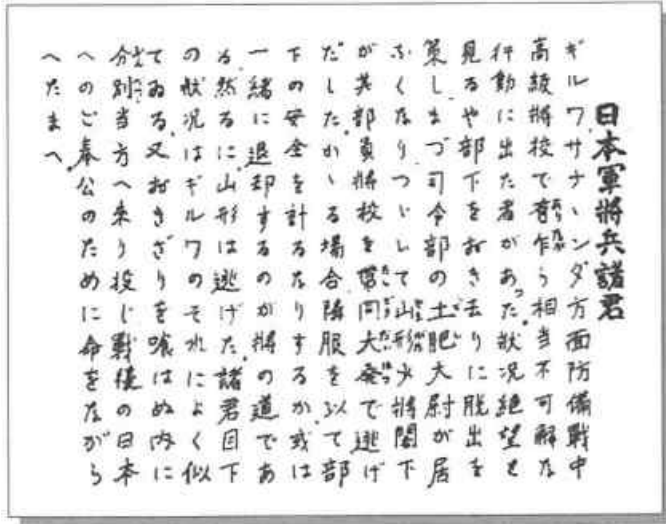 日本軍將兵諸君
ギルワ、サナンンダ方面防備戰中
高級將校で有乍ら相当不可解な
行動に出た者があった。狀况絶望と
見るや部下をおき去りに脱出を
策し、まづ司令部の土肥大尉が居
なくなりつゞいて山形少將閣下
が其部員將校を帶同大発で逃げ
だした。かゝる場合降服を以て部
下の安全を計るなりするか、或は
一緒に退却するのが將の道であ
る。然るに山形は逃げた。諸君目下
の狀况はギルワのそれによく似
てゐる。又おきざりを喰はぬ内に
分別、当方へ来り投じ戰後の日本
へのご奉公のために命をながら
へたまへ。